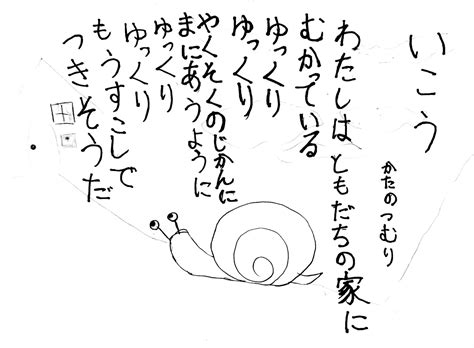 いこう
かたのつむり
わたしはともだちの家に
むかっている
ゆっくり
ゆっくり
やくそくのじかんに
まにあうように
ゆっくり
ゆっくり
もうすこしで
つきそうだ